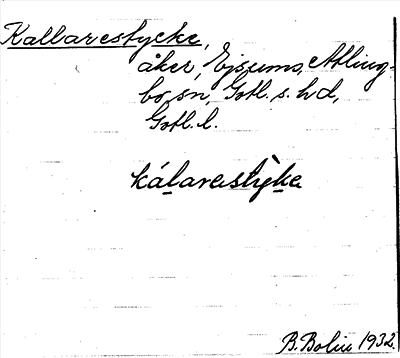 Kallarestycke,
åker, Ejsums, Atling-
bo sn, Gotl. s. hd,
Gotl. l.
kálarestỳke
B. Bolin 1932.